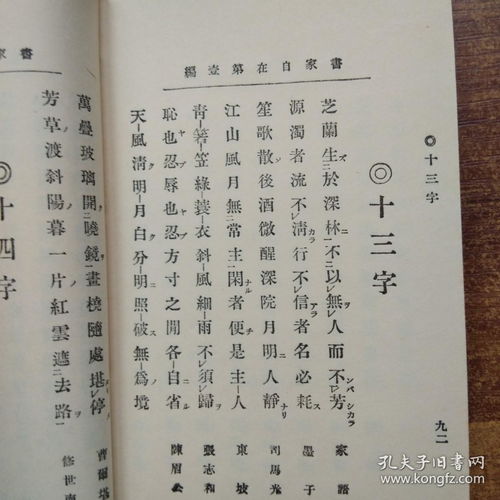 ◎十三字
九二
書家自在第壹編
◎十三字
芝蘭生於深林不以無人而不芳 家語
源濁者流不清行不信者名必耗 墨子
笙歌散後酒微醒深院月明人靜 司馬光
江山風月無常主閑者便是主人 東坡
青箬笠綠蓑衣斜風細雨不須歸 張志和
恥也忍辱也忍方寸之閒各自省 陳眉公
天風淸明月白分明照破無爲境
書家
萬疊玻璃開曉鏡畫橈隨處堪停
芳草渡斜陽暮一片紅雲遮去路
◎十四字
孔夫子旧书网